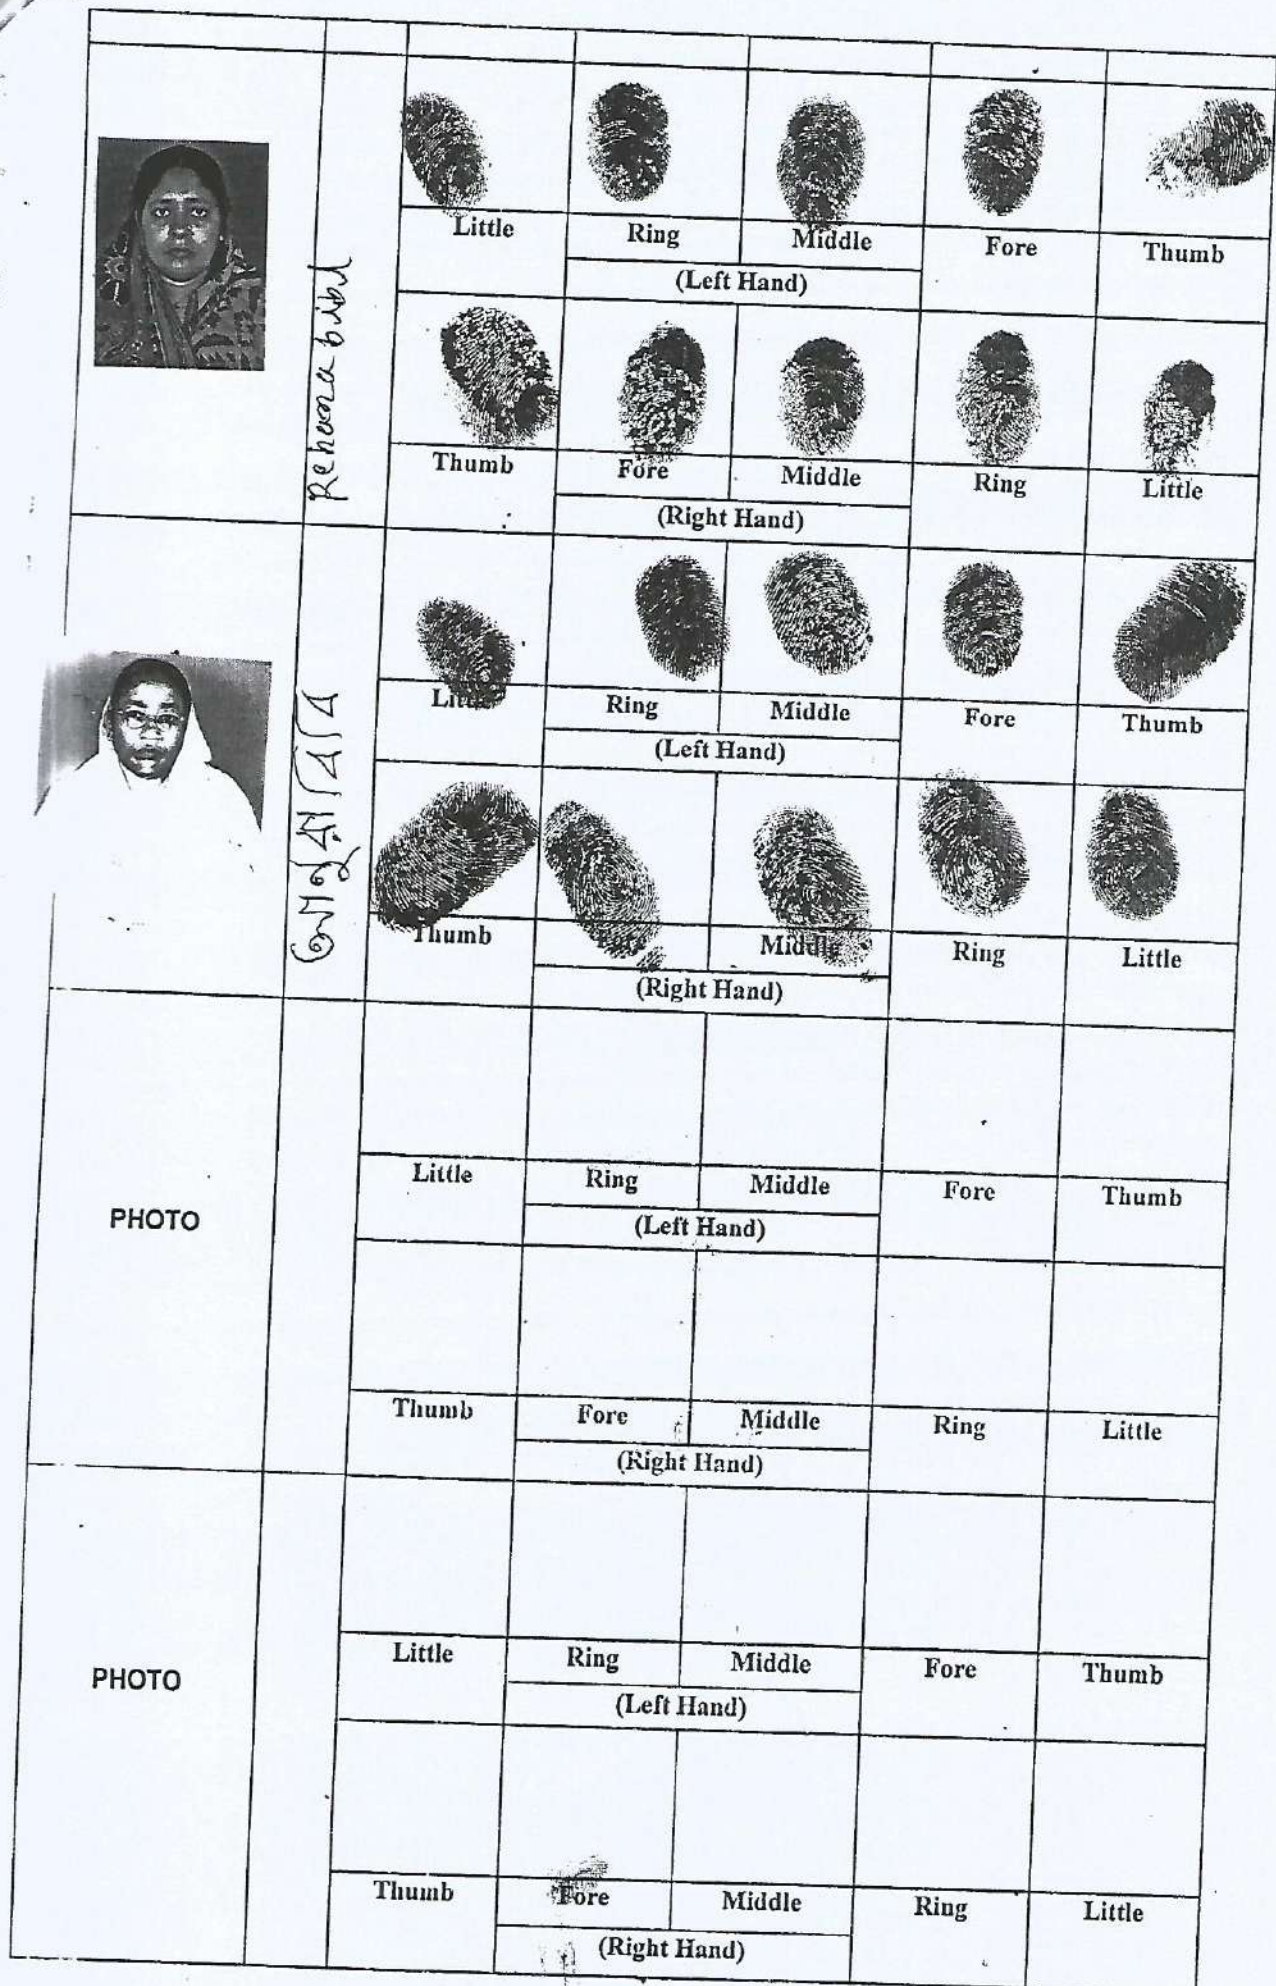 Rehena bibi
Little Ring Middle Fore Thumb
(Left Hand)
Thumb Fore Middle Ring Little
(Right Hand)
Little Ring Middle Fore Thumb
(Left Hand)
Thumb Fore Middle Ring Little
(Right Hand)
PHOTO
Little Ring Middle Fore Thumb
(Left Hand)
Thumb Fore Middle Ring Little
(Right Hand)
PHOTO
Little Ring Middle Fore Thumb
(Left Hand)
Thumb Fore Middle Ring Little
(Right Hand)